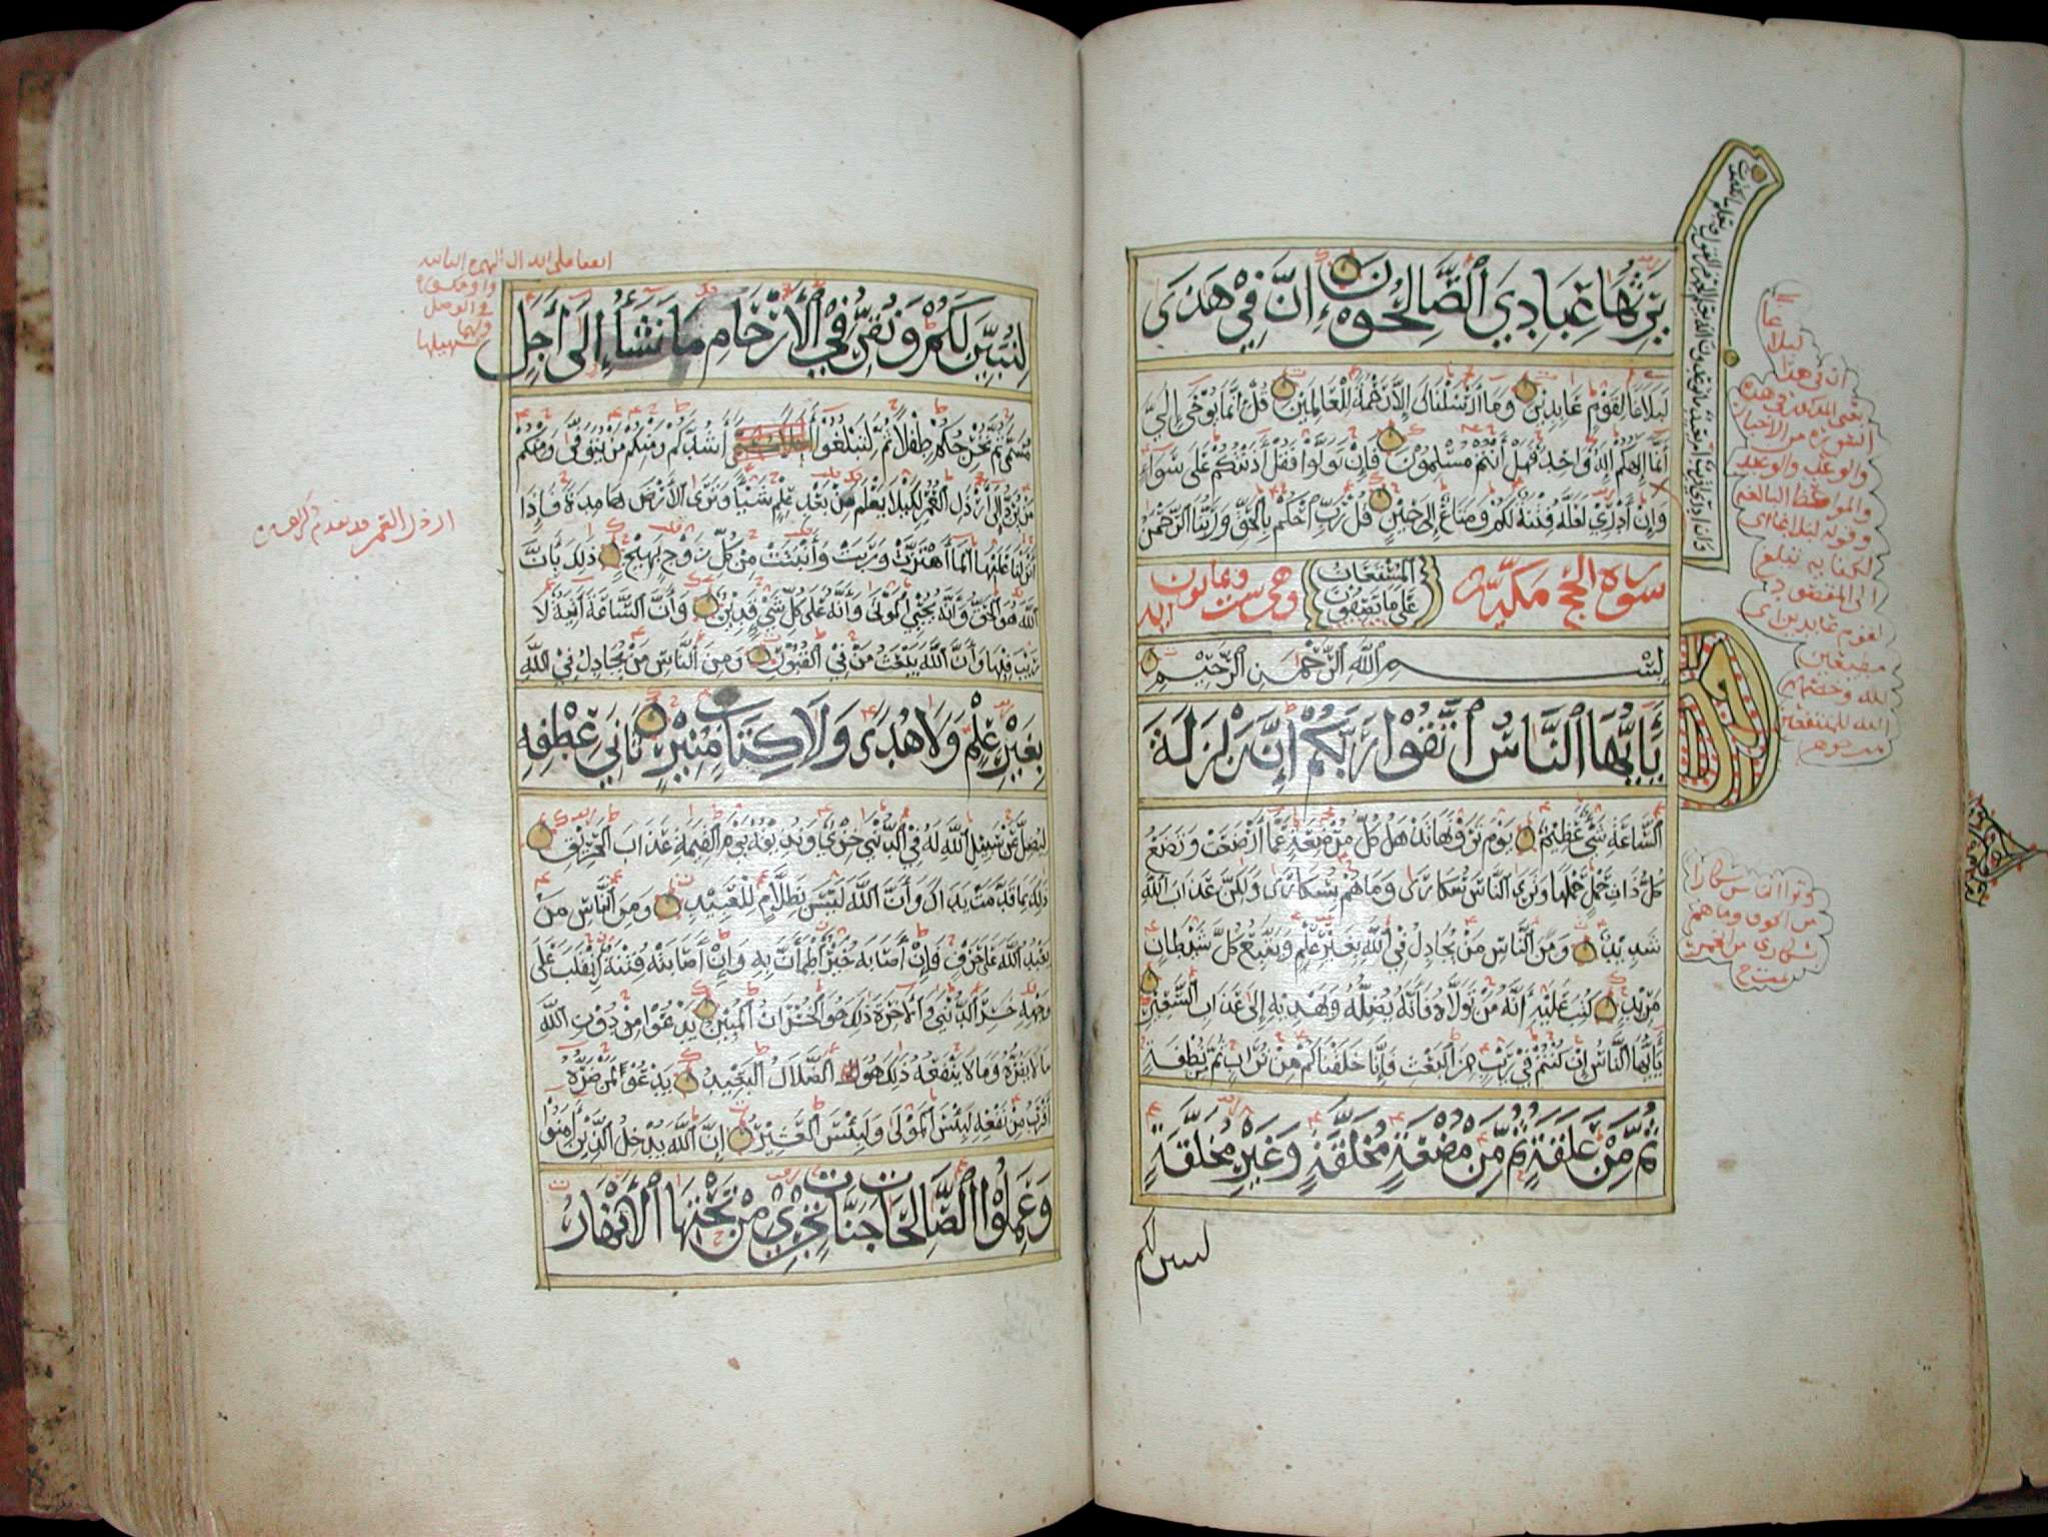 يَرِثُهَا عِبَادِيَ ٱلصَّالِحُونَ إِنَّ فِي هَذَى
لَبَلَاغًا لِقَوْمٍ عَابِدِينَ وَمَا أَرْسَلْنَاكَ إِلَّا رَحْمَةً لِلْعَالَمِينَ قُلْ إِنَّمَا يُوحَى إِلَيَّ
أَنَّمَا إِلَهُكُمْ إِلَهٌ وَاحِدٌ فَهَلْ أَنْتُمْ مُسْلِمُونَ فَإِنْ تَوَلَّوْا فَقُلْ آذَنْتُكُمْ عَلَى سَوَاءٍ
وَإِنْ أَدْرِي لَعَلَّهُ فِتْنَةٌ لَكُمْ وَمَتَاعٌ إِلَى حِينٍ قُلْ رَبِّ ٱحْكُمْ بِالْحَقِّ وَرَبُّنَا ٱلرَّحْمٰنُ
وَإِنْ أَدْرِي أَقَرِيبٌ أَمْ بَعِيدٌ مَا تُوعَدُونَ إِنَّهُ يَعْلَمُ الْجَهْرَ مِنَ الْقَوْلِ وَيَعْلَمُ مَا تَكْتُمُونَ
سورة الحج مكية
الْمُسْتَعَانُ
عَلَى مَا تَصِفُونَ
وهي ست وثمانون
آية
بِسْمِ ٱللَّهِ ٱلرَّحْمٰنِ ٱلرَّحِيمِ
يَٰأَيُّهَا ٱلنَّاسُ ٱتَّقُوا رَبَّكُمْ إِنَّ زَلْزَلَةَ
ٱلسَّاعَةِ شَيْءٌ عَظِيمٌ يَوْمَ تَرَوْنَهَا تَذْهَلُ كُلُّ مُرْضِعَةٍ عَمَّا أَرْضَعَتْ وَتَضَعُ
كُلُّ ذَاتِ حَمْلٍ حَمْلَهَا وَتَرَى ٱلنَّاسَ سُكَارَى وَمَا هُمْ بِسُكَارَى وَلَكِنَّ عَذَابَ ٱللَّهِ
شَدِيدٌ وَمِنَ ٱلنَّاسِ مَنْ يُجَادِلُ فِي ٱللَّهِ بِغَيْرِ عِلْمٍ وَيَتَّبِعُ كُلَّ شَيْطَانٍ
مَرِيدٍ كُتِبَ عَلَيْهِ أَنَّهُ مَنْ تَوَلَّاهُ فَأَنَّهُ يُضِلُّهُ وَيَهْدِيهِ إِلَى عَذَابِ ٱلسَّعِيرِ
يَٰأَيُّهَا ٱلنَّاسُ إِنْ كُنْتُمْ فِي رَيْبٍ مِنَ ٱلْبَعْثِ فَإِنَّا خَلَقْنَاكُمْ مِنْ تُرَابٍ ثُمَّ مِنْ نُطْفَةٍ
ثُمَّ مِنْ عَلَقَةٍ ثُمَّ مِنْ مُضْغَةٍ مُخَلَّقَةٍ وَغَيْرِ مُخَلَّقَةٍ
لنبين لكم
ان في هذا
لبلاغا
وترا الناس سكارا
من الخوف وما هم
بسكارى
لِنُبَيِّنَ لَكُمْ وَنُقِرُّ فِي ٱلْأَرْحَامِ مَا نَشَاءُ إِلَى أَجَلٍ
مُسَمًّى ثُمَّ نُخْرِجُكُمْ طِفْلًا ثُمَّ لِتَبْلُغُوا أَشُدَّكُمْ وَمِنْكُمْ مَنْ يُتَوَفَّى وَمِنْكُمْ
مَنْ يُرَدُّ إِلَى أَرْذَلِ ٱلْعُمُرِ لِكَيْلَا يَعْلَمَ مِنْ بَعْدِ عِلْمٍ شَيْئًا وَتَرَى ٱلْأَرْضَ هَامِدَةً فَإِذَا
أَنْزَلْنَا عَلَيْهَا ٱلْمَاءَ ٱهْتَزَّتْ وَرَبَتْ وَأَنْبَتَتْ مِنْ كُلِّ زَوْجٍ بَهِيجٍ ذَلِكَ بِأَنَّ
ٱللَّهَ هُوَ ٱلْحَقُّ وَأَنَّهُ يُحْيِي ٱلْمَوْتَى وَأَنَّهُ عَلَى كُلِّ شَيْءٍ قَدِيرٌ وَأَنَّ ٱلسَّاعَةَ آتِيَةٌ لَا
رَيْبَ فِيهَا وَأَنَّ ٱللَّهَ يَبْعَثُ مَنْ فِي ٱلْقُبُورِ وَمِنَ ٱلنَّاسِ مَنْ يُجَادِلُ فِي ٱللَّهِ
بِغَيْرِ عِلْمٍ وَلَا هُدًى وَلَا كِتَابٍ مُنِيرٍ ثَانِيَ عِطْفِهِ
لِيُضِلَّ عَنْ سَبِيلِ ٱللَّهِ لَهُ فِي ٱلدُّنْيَى خِزْيٌ وَنُذِيقُهُ يَوْمَ ٱلْقِيٰمَةِ عَذَابَ ٱلْحَرِيقِ
ذَلِكَ بِمَا قَدَّمَتْ يَدَاكَ وَأَنَّ ٱللَّهَ لَيْسَ بِظَلَّامٍ لِلْعَبِيدِ وَمِنَ ٱلنَّاسِ مَنْ
يَعْبُدُ ٱللَّهَ عَلَى حَرْفٍ فَإِنْ أَصَابَهُ خَيْرٌ ٱطْمَأَنَّ بِهِ وَإِنْ أَصَابَتْهُ فِتْنَةٌ ٱنْقَلَبَ عَلَى
وَجْهِهِ خَسِرَ ٱلدُّنْيَى وَٱلْآخِرَةَ ذَلِكَ هُوَ ٱلْخُسْرَانُ ٱلْمُبِينُ يَدْعُوا مِنْ دُونِ ٱللَّهِ
مَا لَا يَضُرُّهُ وَمَا لَا يَنْفَعُهُ ذَلِكَ هُوَ ٱلضَّلَالُ ٱلْبَعِيدُ يَدْعُوا لَمَنْ ضَرُّهُ
أَقْرَبُ مِنْ نَفْعِهِ لَبِئْسَ ٱلْمَوْلَى وَلَبِئْسَ ٱلْعَشِيرُ إِنَّ ٱللَّهَ يُدْخِلُ ٱلَّذِينَ آمَنُوا
وَعَمِلُوا ٱلصَّالِحَاتِ جَنَّاتٍ تَجْرِي مِنْ تَحْتِهَا ٱلْأَنْهَارُ